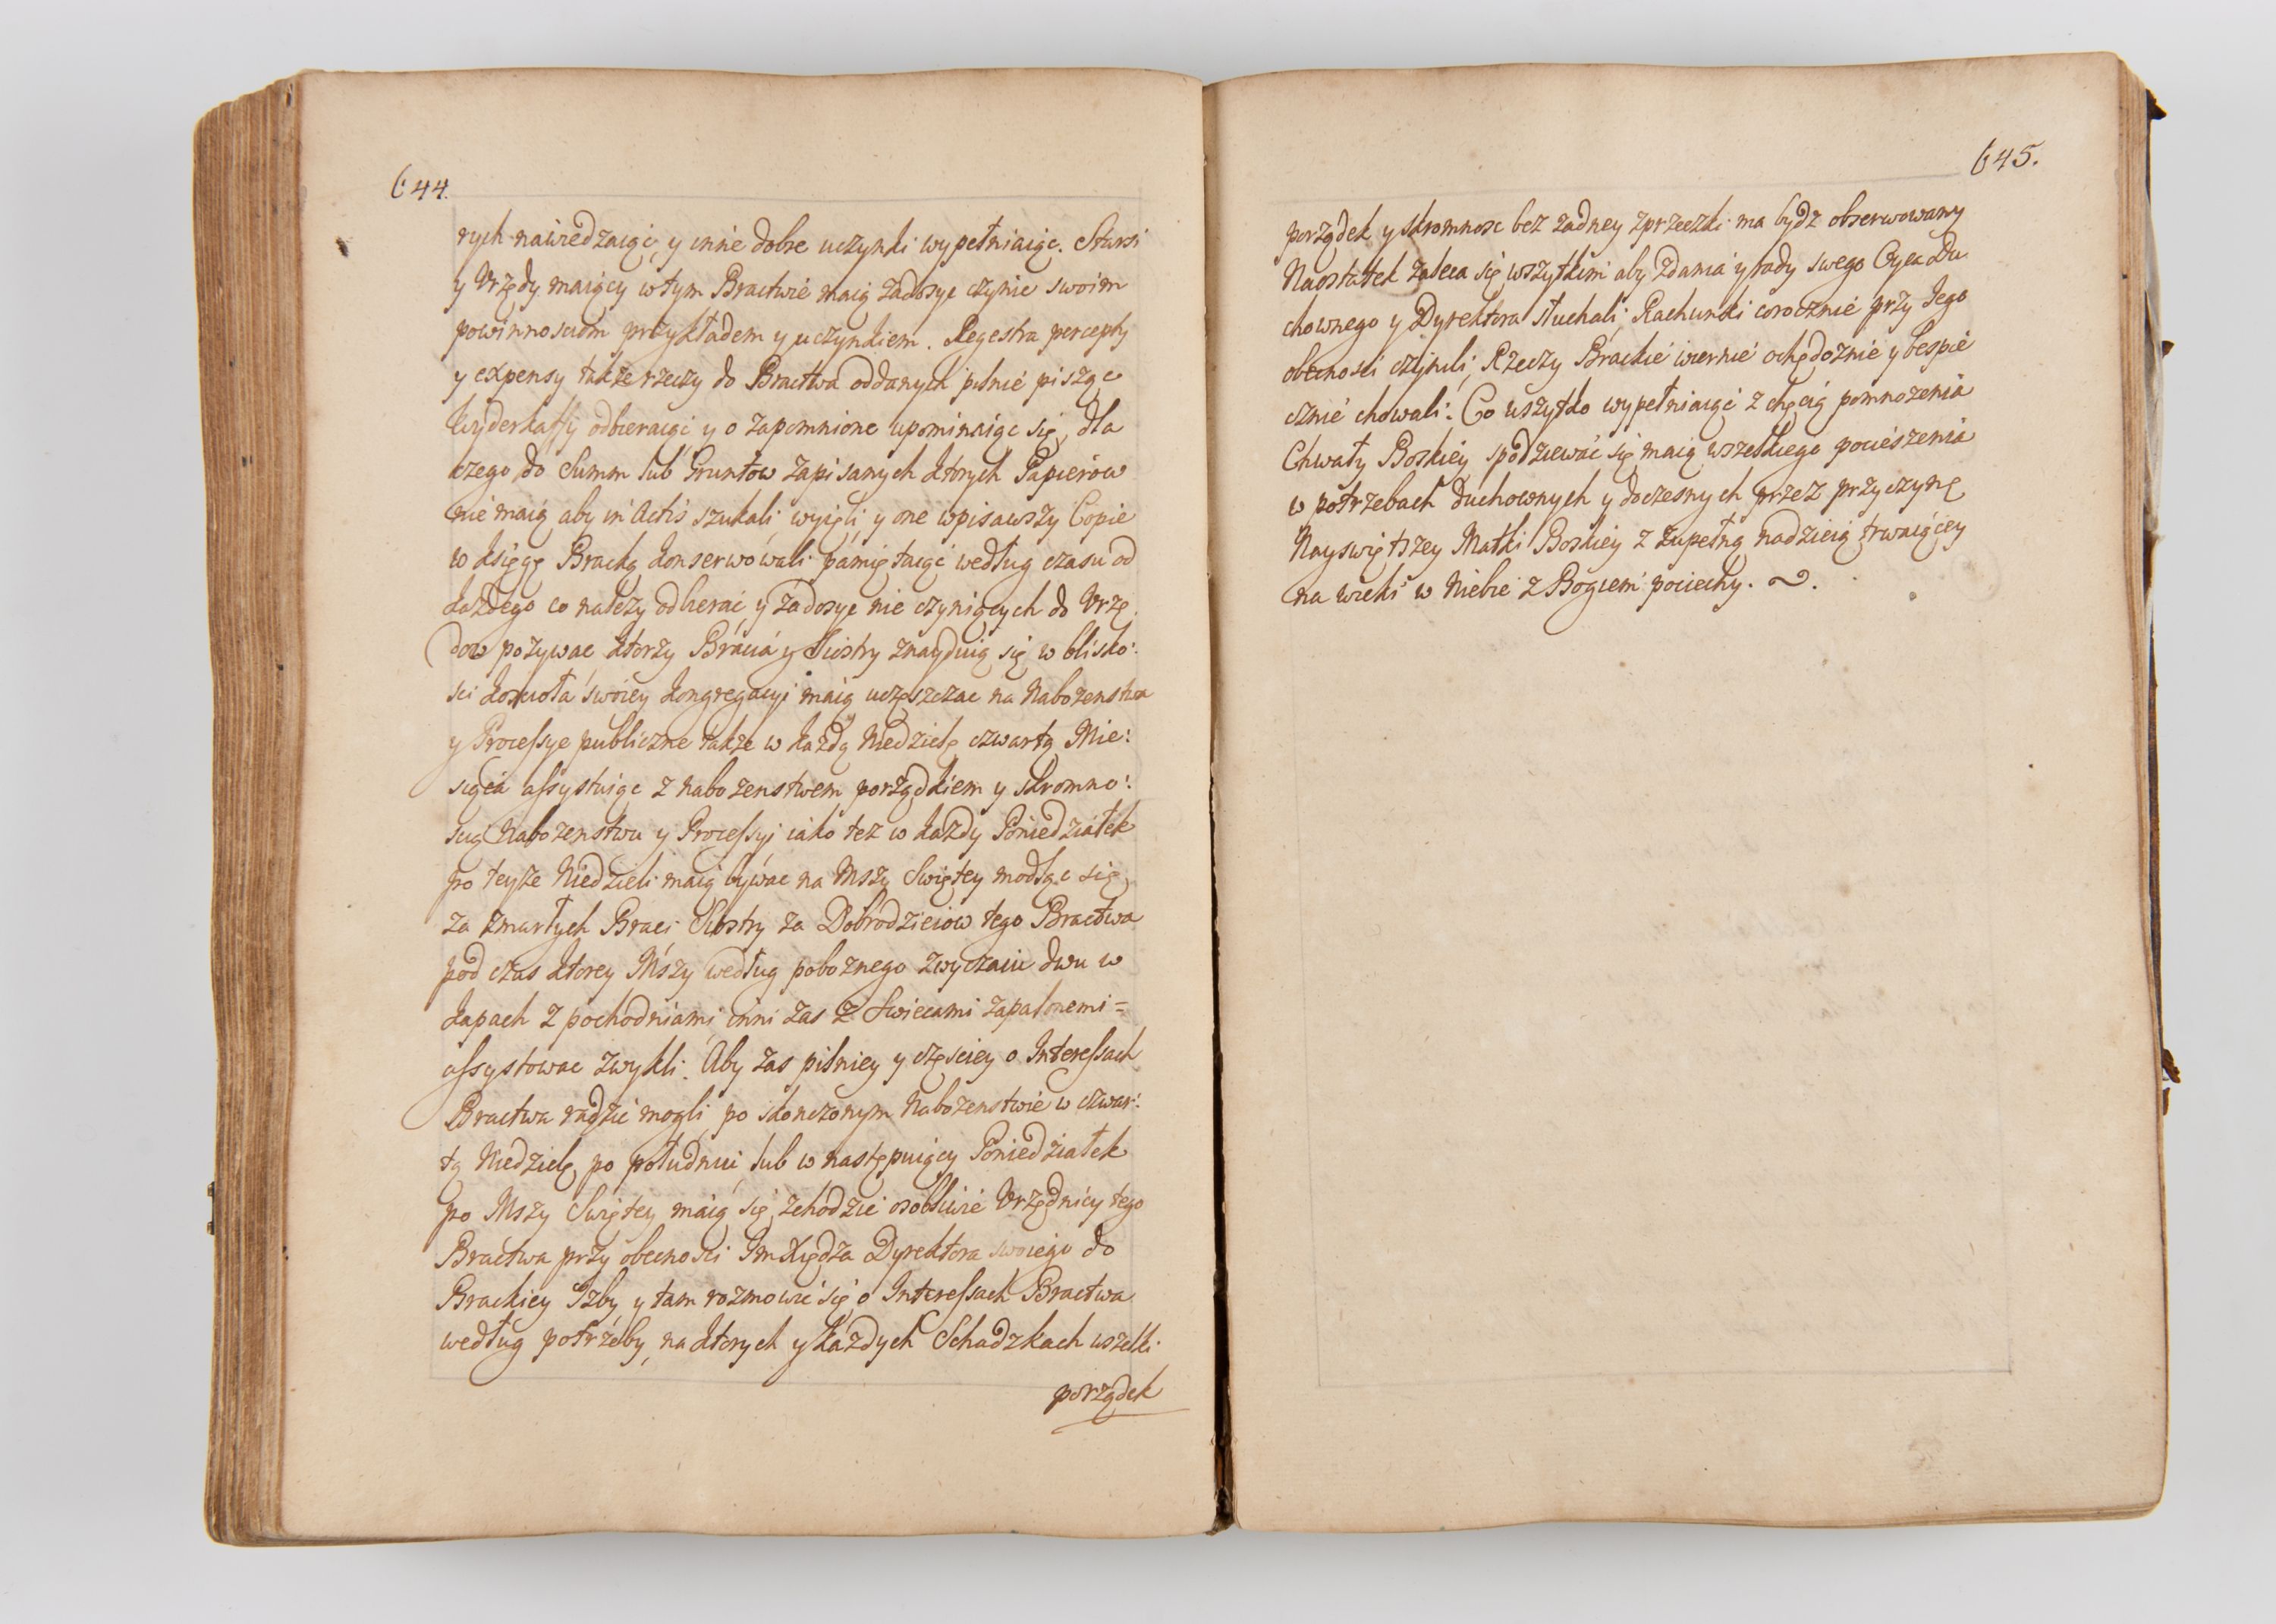 644.
rych nawiedzaiąc, y inne dobre uczynki wypełniaiąc. Starsi
y Vrzędy maiący w tym Bractwie maią zadosyc czynic swoim
powinnosciom przykładem y uczynkiem. Regestra percepty
y expensy także rzeczy do Bractwa oddanych pilnie pisząc
Wyderkaffy odbieraiąc y o zapomnione upominaiąc się, dla
czego do Summ lub Gruntow zapisanych ktorych Papierow
nie maią aby in Actis szukali, wyięli, y one wpisawszy Copie
w Księgę Bracką konserwowali pamiętaiąc według czasu od
każdego co należy odbierać, y zadosyc nie czyniących do Vrzę
dow pozywac ktorzy Bracia y Siostry znayduią się w blisko:
sci Koscioła swoiey Kongregacyi maią uczęszczac na Nabozenstwa
y Processye publiczne także w każdą Niedzielę czwartą Mie:
siąca assystuiąc z nabozenstwem porządkiem y skromno:
scią Nabozenstwu y Processyi iako tez w każdy Poniedziałek
po teyże Niedzieli maią bywac na Mszy Swiętey modląc się
za zmarłych Braci Siostry za Dobrodzieiow tego Bractwa
pod czas ktorey Mszy według poboznego zwyczaiu dwu w
kapach z pochodniami inni zas z Swiecami zapalonemi =
assystowac zwykli. Aby zas pilniey y częsciey o Interessach
Bractwa radzic mogli, po skonczonym Nabozenstwie w czwar:
tą Niedzielę po południu, lub w następuiący Poniedziałek
po Mszy Swiętey maią się zchodzic osobliwie Vrzędnicy tego
Bractwa przy obecnosci Jm Xiędza Dyrektora swoiego do
Brackiey Izby y tam rozmowic się o Interessach Bractwa
według potrzeby, na ktorych y każdych Schadzkach wszelki
porządek
645.
porządek y skromnosc bez zadney zprzeczki ma bydz obserwowany
Naostatek zaleca się wszytkim aby zdania y rady swego Oyca Du
chownego y Dyrektora słuchali, Rachunki corocznie przy Jego
obecnosci czynili, Rzeczy Brackie wiernie ochędoznie y bespie
cznie chowali. Co wszytko wypełniaiąc z chęcią pomnozenia
Chwały Boskiey spodziewać się maią wszelkiego pocieszenia
w potrzebach duchownych y doczesnych przez przyczynę
Nayswiętszey Matki Boskiey z zupełną nadzieią trwaiącey
na wieki w Niebie z Bogiem pociechy.